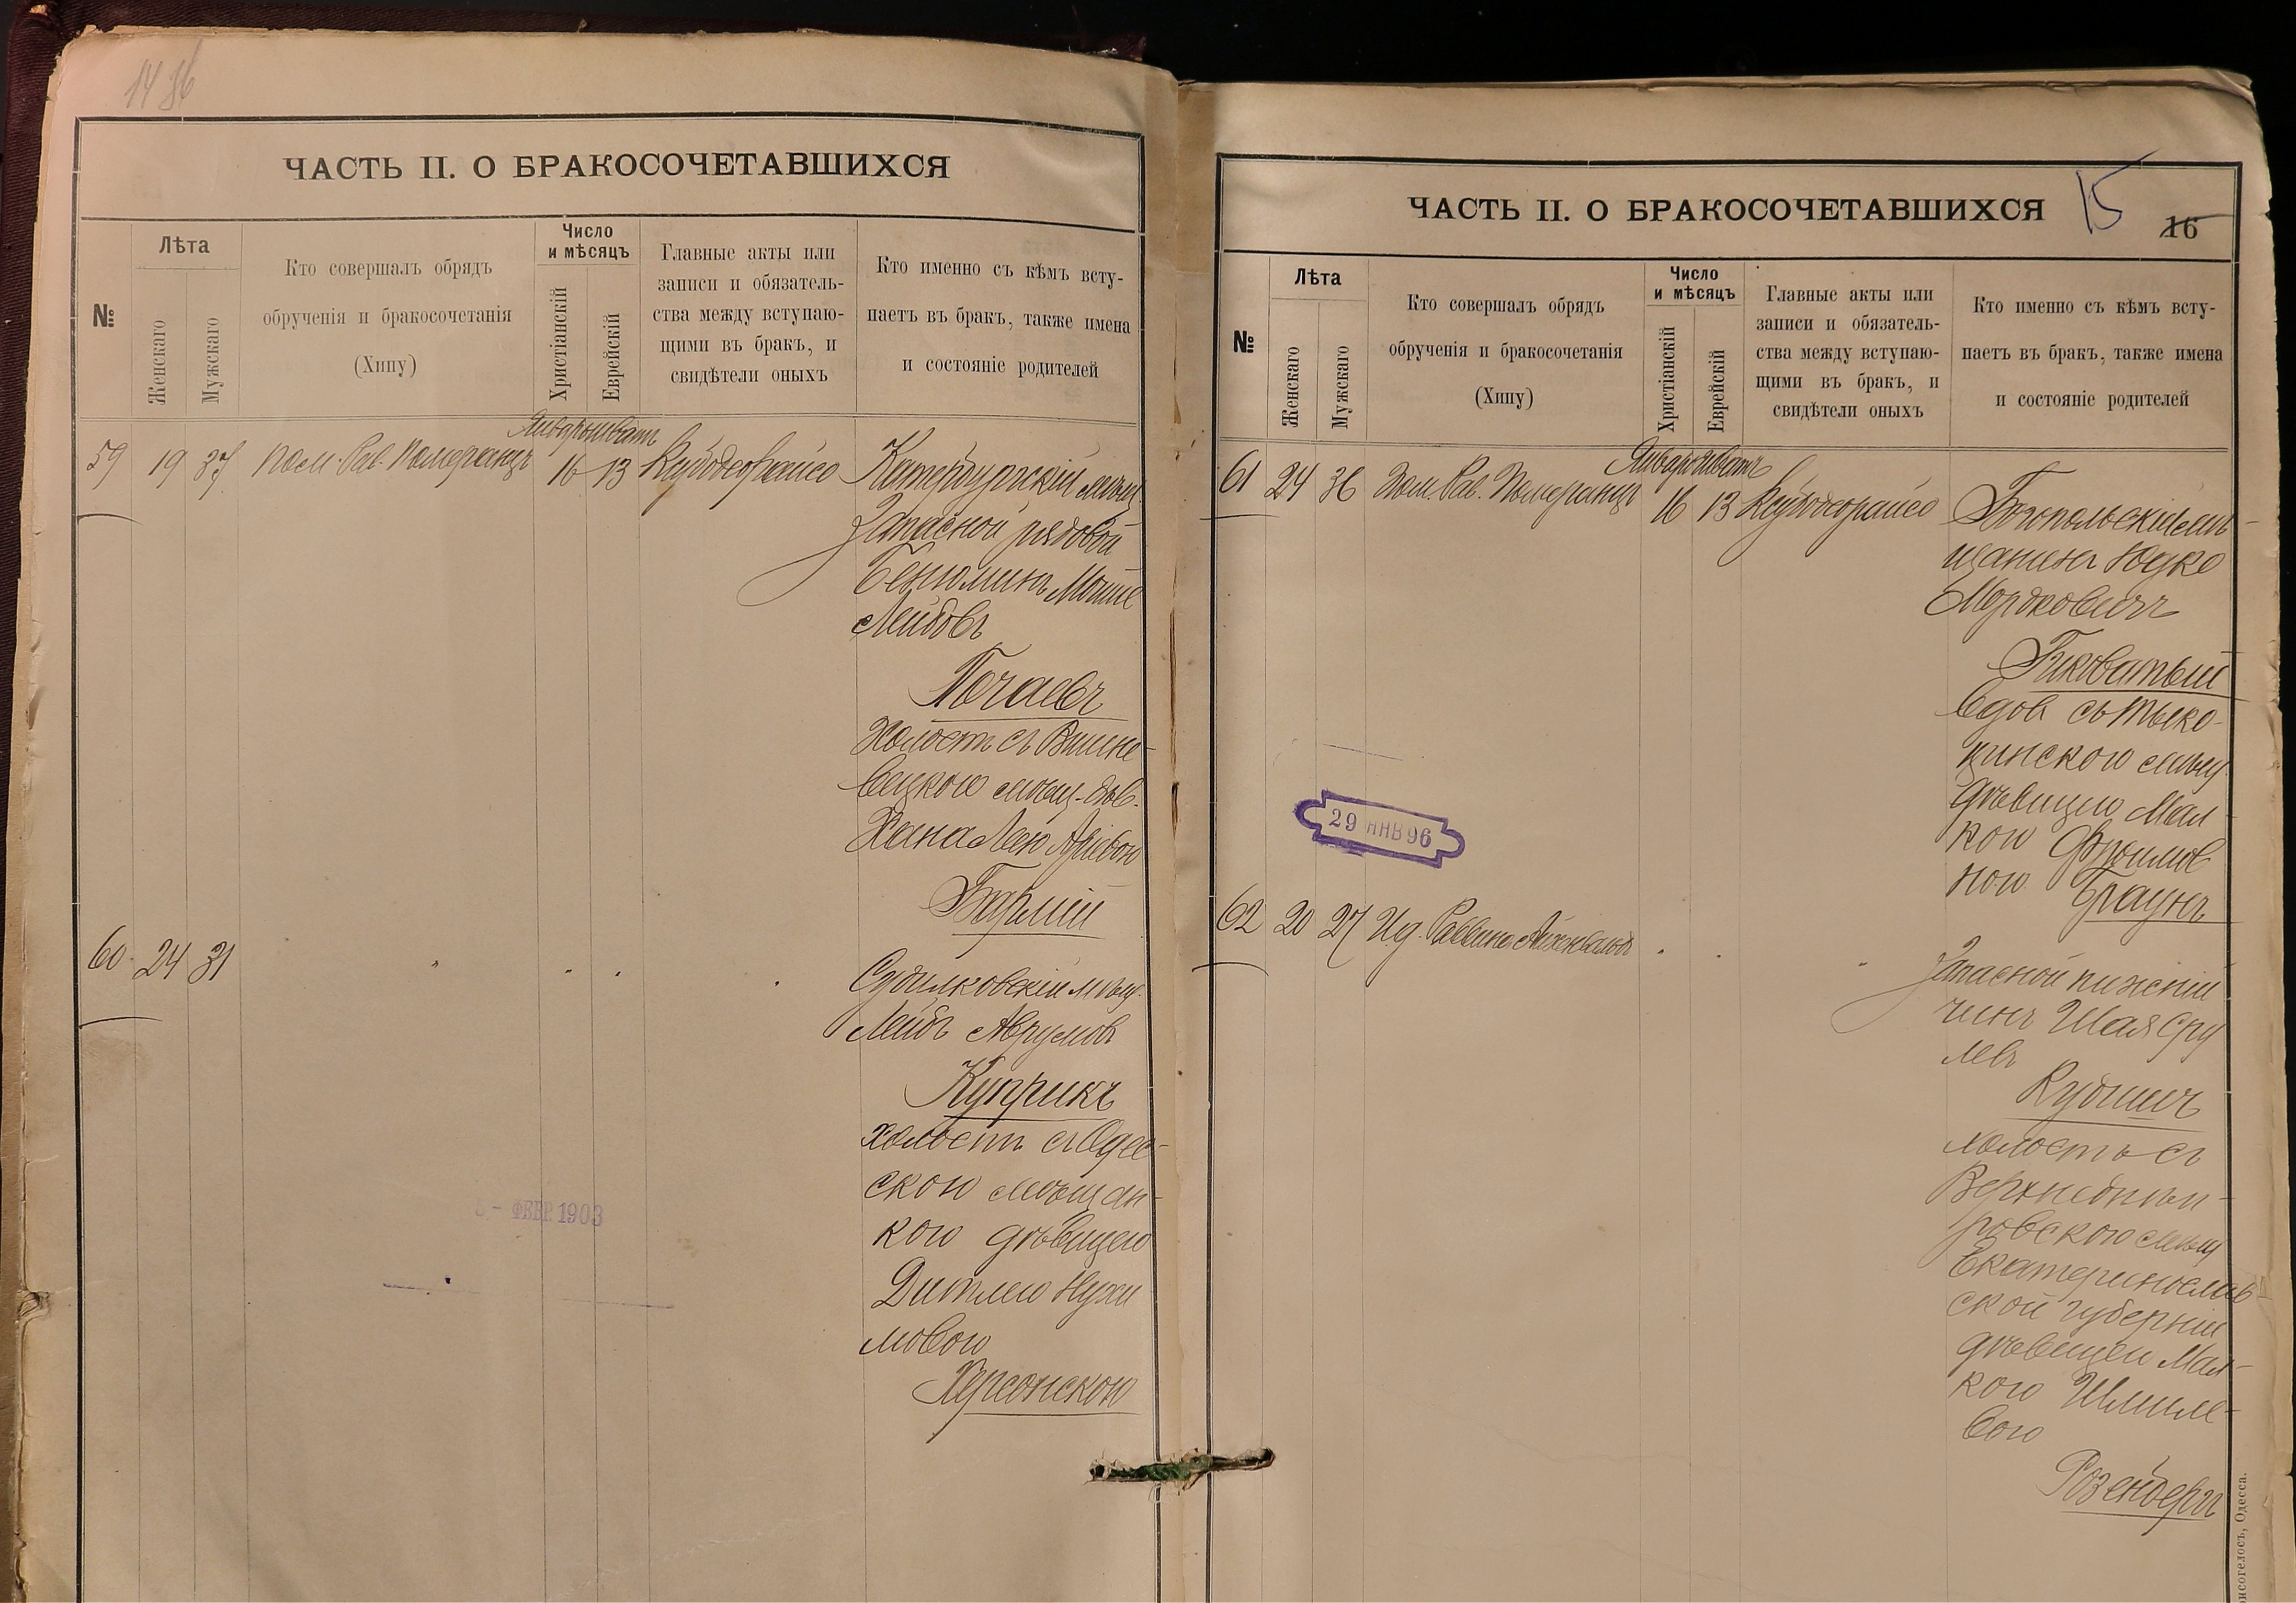 14 86
ЧАСТЬ II. О БРАКОСОЧЕТАВШИХСЯ
№
Лѣта
Женскаго
Мужскаго
Кто совершалъ обрядъ
обрученія и бракосочетанія
(Хипу)
Число
и мѣсяцъ
Христіанскій
Еврейскій
Главные акты или
записи и обязатель-
ства между вступаю-
щими въ бракъ, и
свидѣтели оныхъ
Кто именно съ кѣмъ всту-
паетъ въ бракъ, также имена
и состояніе родителей
59 19 37 Пом. Рав. Померанцъ
Январь Шватъ
16 13 Ксубодеорайсо
Катербургскій мѣщ.
Запасной рядовой
Беніоминъ Мошко
Лейбовъ
Почаевъ
Холостъ съ Вишне-
вецкою мѣщ. дѣв.
Хана Лею
Бармий
60 24 31
Судилковскій мѣщ.
Лейбъ Аврумовъ
Куприкъ
холостъ съ Одес-
скою мѣщан-
кою дѣвицею
Нухи
мовою
Херсонскою
5 - ФЕВР. 1903
ЧАСТЬ II. О БРАКОСОЧЕТАВШИХСЯ
15
16
№
Лѣта
Женскаго
Мужскаго
Кто совершалъ обрядъ
обрученія и бракосочетанія
(Хипу)
Число
и мѣсяцъ
Христіанскій
Еврейскій
Главные акты или
записи и обязатель-
ства между вступаю-
щими въ бракъ, и
свидѣтели оныхъ
Кто именно съ кѣмъ всту-
паетъ въ бракъ, также имена
и состояніе родителей
61 24 36 Пом. Рав. Померанцъ
Январь Шватъ
16 13 Ксубодеорайсо
Богопольскій мѣ
щанинъ Юдко
Мордковичъ
Гиковатый
вдов. съ Тыко-
цинскою мѣщ.
дѣвицею Мал
кою Фроимов
ною Браунъ
29 ЯНВ 96
62 20 27 И.д. Раввина Айхенвальдъ
Запасной нижній
чинъ Шая Сру
левъ
Кубшичъ
холостъ съ
Верхнеднѣп-
ровскою мѣщ
Екатеринослав-
ской губерніи
дѣвицей Мал-
кою Шмиле-
вою
Розенбергъ
Одесса.